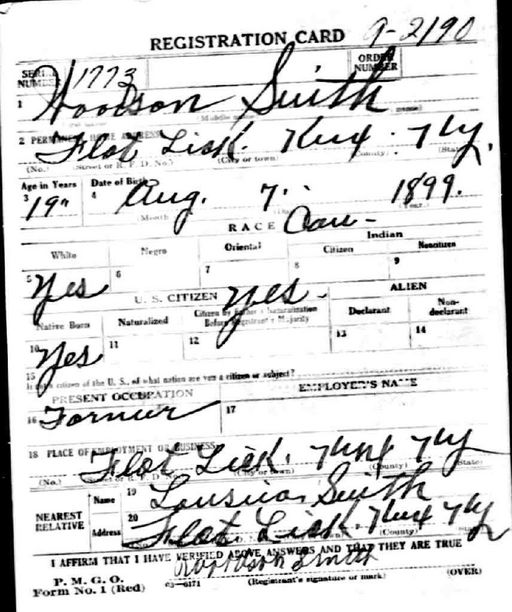 REGISTRATION CARD 9-2190
SERIAL NUMBER 1773 ORDER NUMBER
1 Woodson Smith
2 PERMANENT HOME ADDRESS
Flat Lick. Knox. Ky.
(No.) (Street or R. F. D. No.) (City or town) (County) (State)
Age in Years Date of Birth
3 19 4 Aug. 7. 1899.
Month Day Year
RACE Cau-
White Negro Oriental Indian
Citizen Noncitizen
5 Yes 6 7 8 9
U. S. CITIZEN yes- ALIEN
Native Born Naturalized Citizen by Father's Naturalization Before Registrant's Majority Declarant Non-declarant
10 Yes 11 12 13 14
15 If not a citizen of the U. S., of what nation are you a citizen or subject?
PRESENT OCCUPATION EMPLOYER'S NAME
16 Farmer 17
18 PLACE OF EMPLOYMENT OR BUSINESS
Flat Lick. Knox Ky
(No.) (Street or R. F. D. No.) (City or town) (County) (State)
NEAREST RELATIVE Name 19 Smith
Address 20 Flat Lick Knox Ky
I AFFIRM THAT I HAVE VERIFIED ABOVE ANSWERS AND THAT THEY ARE TRUE
P. M. G. O.
Form No. 1 (Red) 03-6171 (Registrant's signature or mark) (OVER)
Smith